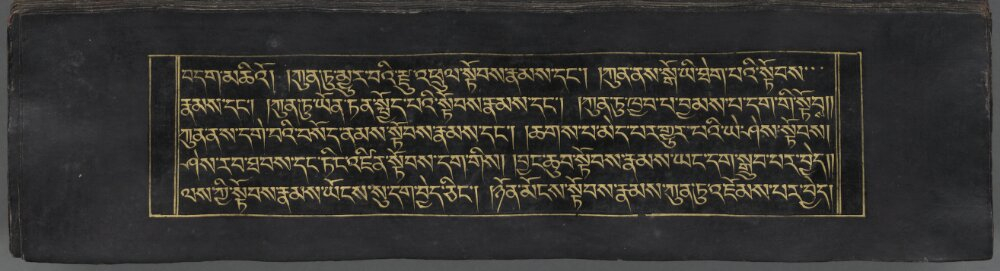 བདག་མཆིའོ། །ཀུན་ཏུ་མྱུར་བའི་རྫུ་འཕྲུལ་སྟོབས་རྣམས་དང་། །ཀུན་ནས་སྒོ་ཡི་ཐེག་པའི་སྟོབས་་་
རྣམས་དང་། །ཀུན་ཏུ་ཡོན་ཏན་སྤྱོད་པའི་སྟོབས་རྣམས་དང་། །ཀུན་ཏུ་ཁྱབ་པ་བྱམས་པ་དག་གི་སྟོབ།།
ཀུན་ནས་དགེ་བའི་བསོད་ནམས་སྟོབས་རྣམས་དང་། །ཆགས་པ་མེད་པར་གྱུར་པའི་ཡེ་ཤེས་སྟོབས།
ཤེས་རབ་ཐབས་དང་ཏིང་འཛིན་སྟོབས་དག་གིས། །བྱང་ཆུབ་སྟོབས་རྣམས་ཡང་དག་སྒྲུབ་པར་བྱེད།།
ལས་ཀྱི་སྟོབས་རྣམས་ཡོངས་སུ་དག་བྱེད་ཅིང་། །ཉོན་མོངས་སྟོབས་རྣམས་ཀུན་ཏུ་འཇོམས་པར་བྱེད།